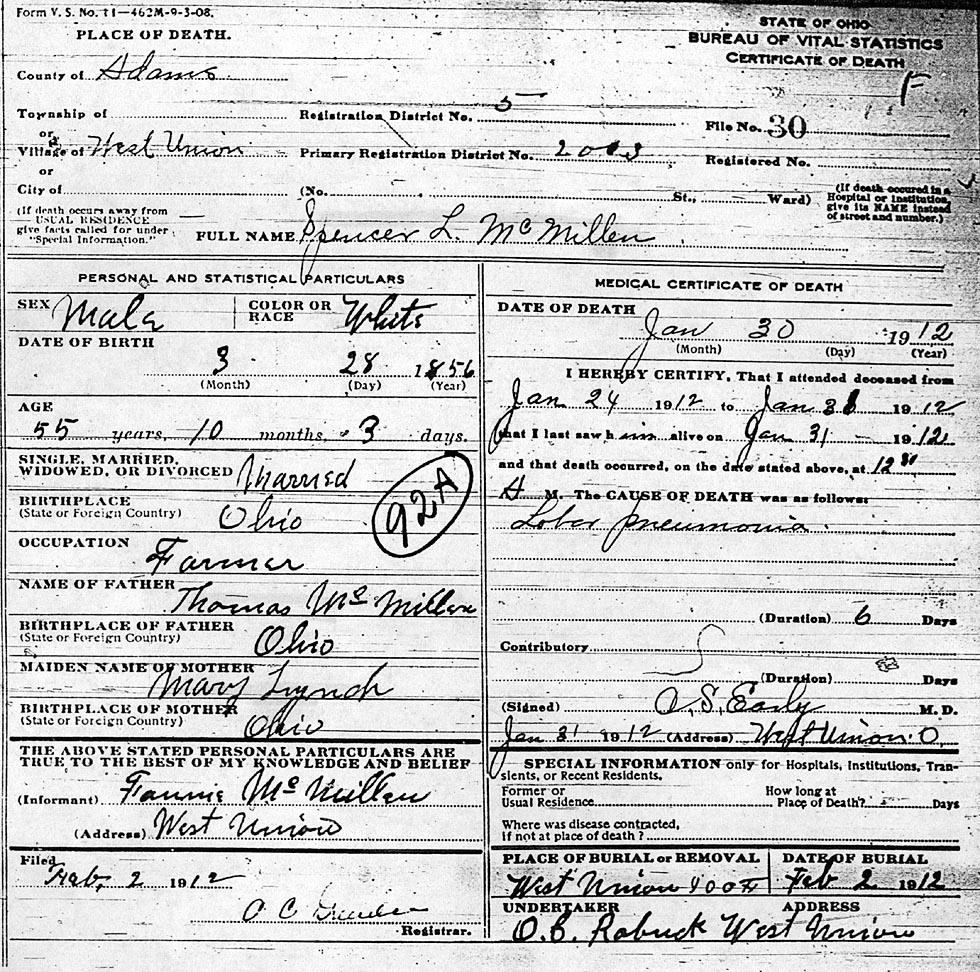 Form V. S. No. 11—462M-9-3-08.
PLACE OF DEATH.
STATE OF OHIO
BUREAU OF VITAL STATISTICS
CERTIFICATE OF DEATH
County of Adams
F
Township of
Registration District No. 5
File No. 30
or
Village of West Union
Primary Registration District No.
Registered No.
or
City of (No. St., Ward)
(If death occured in a Hospital or Institution, give its NAME instead of street and number.)
(If death occurs away from USUAL RESIDENCE give facts called for under "Special Information.")
FULL NAME Spencer L. McMillen
PERSONAL AND STATISTICAL PARTICULARS
SEX Male
COLOR OR RACE White
DATE OF BIRTH
3 28 1856
(Month) (Day) (Year)
AGE
55 years, 10 months, 3 days.
SINGLE, MARRIED, WIDOWED, OR DIVORCED Married
BIRTHPLACE
(State or Foreign Country) Ohio
92A
OCCUPATION
Farmer
NAME OF FATHER
Thomas McMillen
BIRTHPLACE OF FATHER
(State or Foreign Country) Ohio
MAIDEN NAME OF MOTHER
Mary Lynch
BIRTHPLACE OF MOTHER
(State or Foreign Country) Ohio
THE ABOVE STATED PERSONAL PARTICULARS ARE
TRUE TO THE BEST OF MY KNOWLEDGE AND BELIEF
(Informant) Fannie McMillen
(Address) West Union
Filed
Feb, 2 1912
O C
Registrar.
MEDICAL CERTIFICATE OF DEATH
DATE OF DEATH
Jan 30 1912
(Month) (Day) (Year)
I HEREBY CERTIFY, That I attended deceased from
Jan 24 1912 to Jan 1912
that I last saw him alive on Jan 31 1912
and that death occurred, on the date stated above, at 12
A M. The CAUSE OF DEATH was as follows:
Lobar pneumonia
(Duration) 6 Days
Contributory
(Duration) Days
(Signed) O. S. Early M.D.
Jan 31 1912 (Address) West Union O
SPECIAL INFORMATION only for Hospitals, Institutions, Transients, or Recent Residents.
Former or Usual Residence
How long at Place of Death? Days
Where was disease contracted,
if not at place of death?
PLACE OF BURIAL or REMOVAL
West Union
DATE OF BURIAL
Feb 2 1912
UNDERTAKER
O. B. Robuck
ADDRESS
West Union